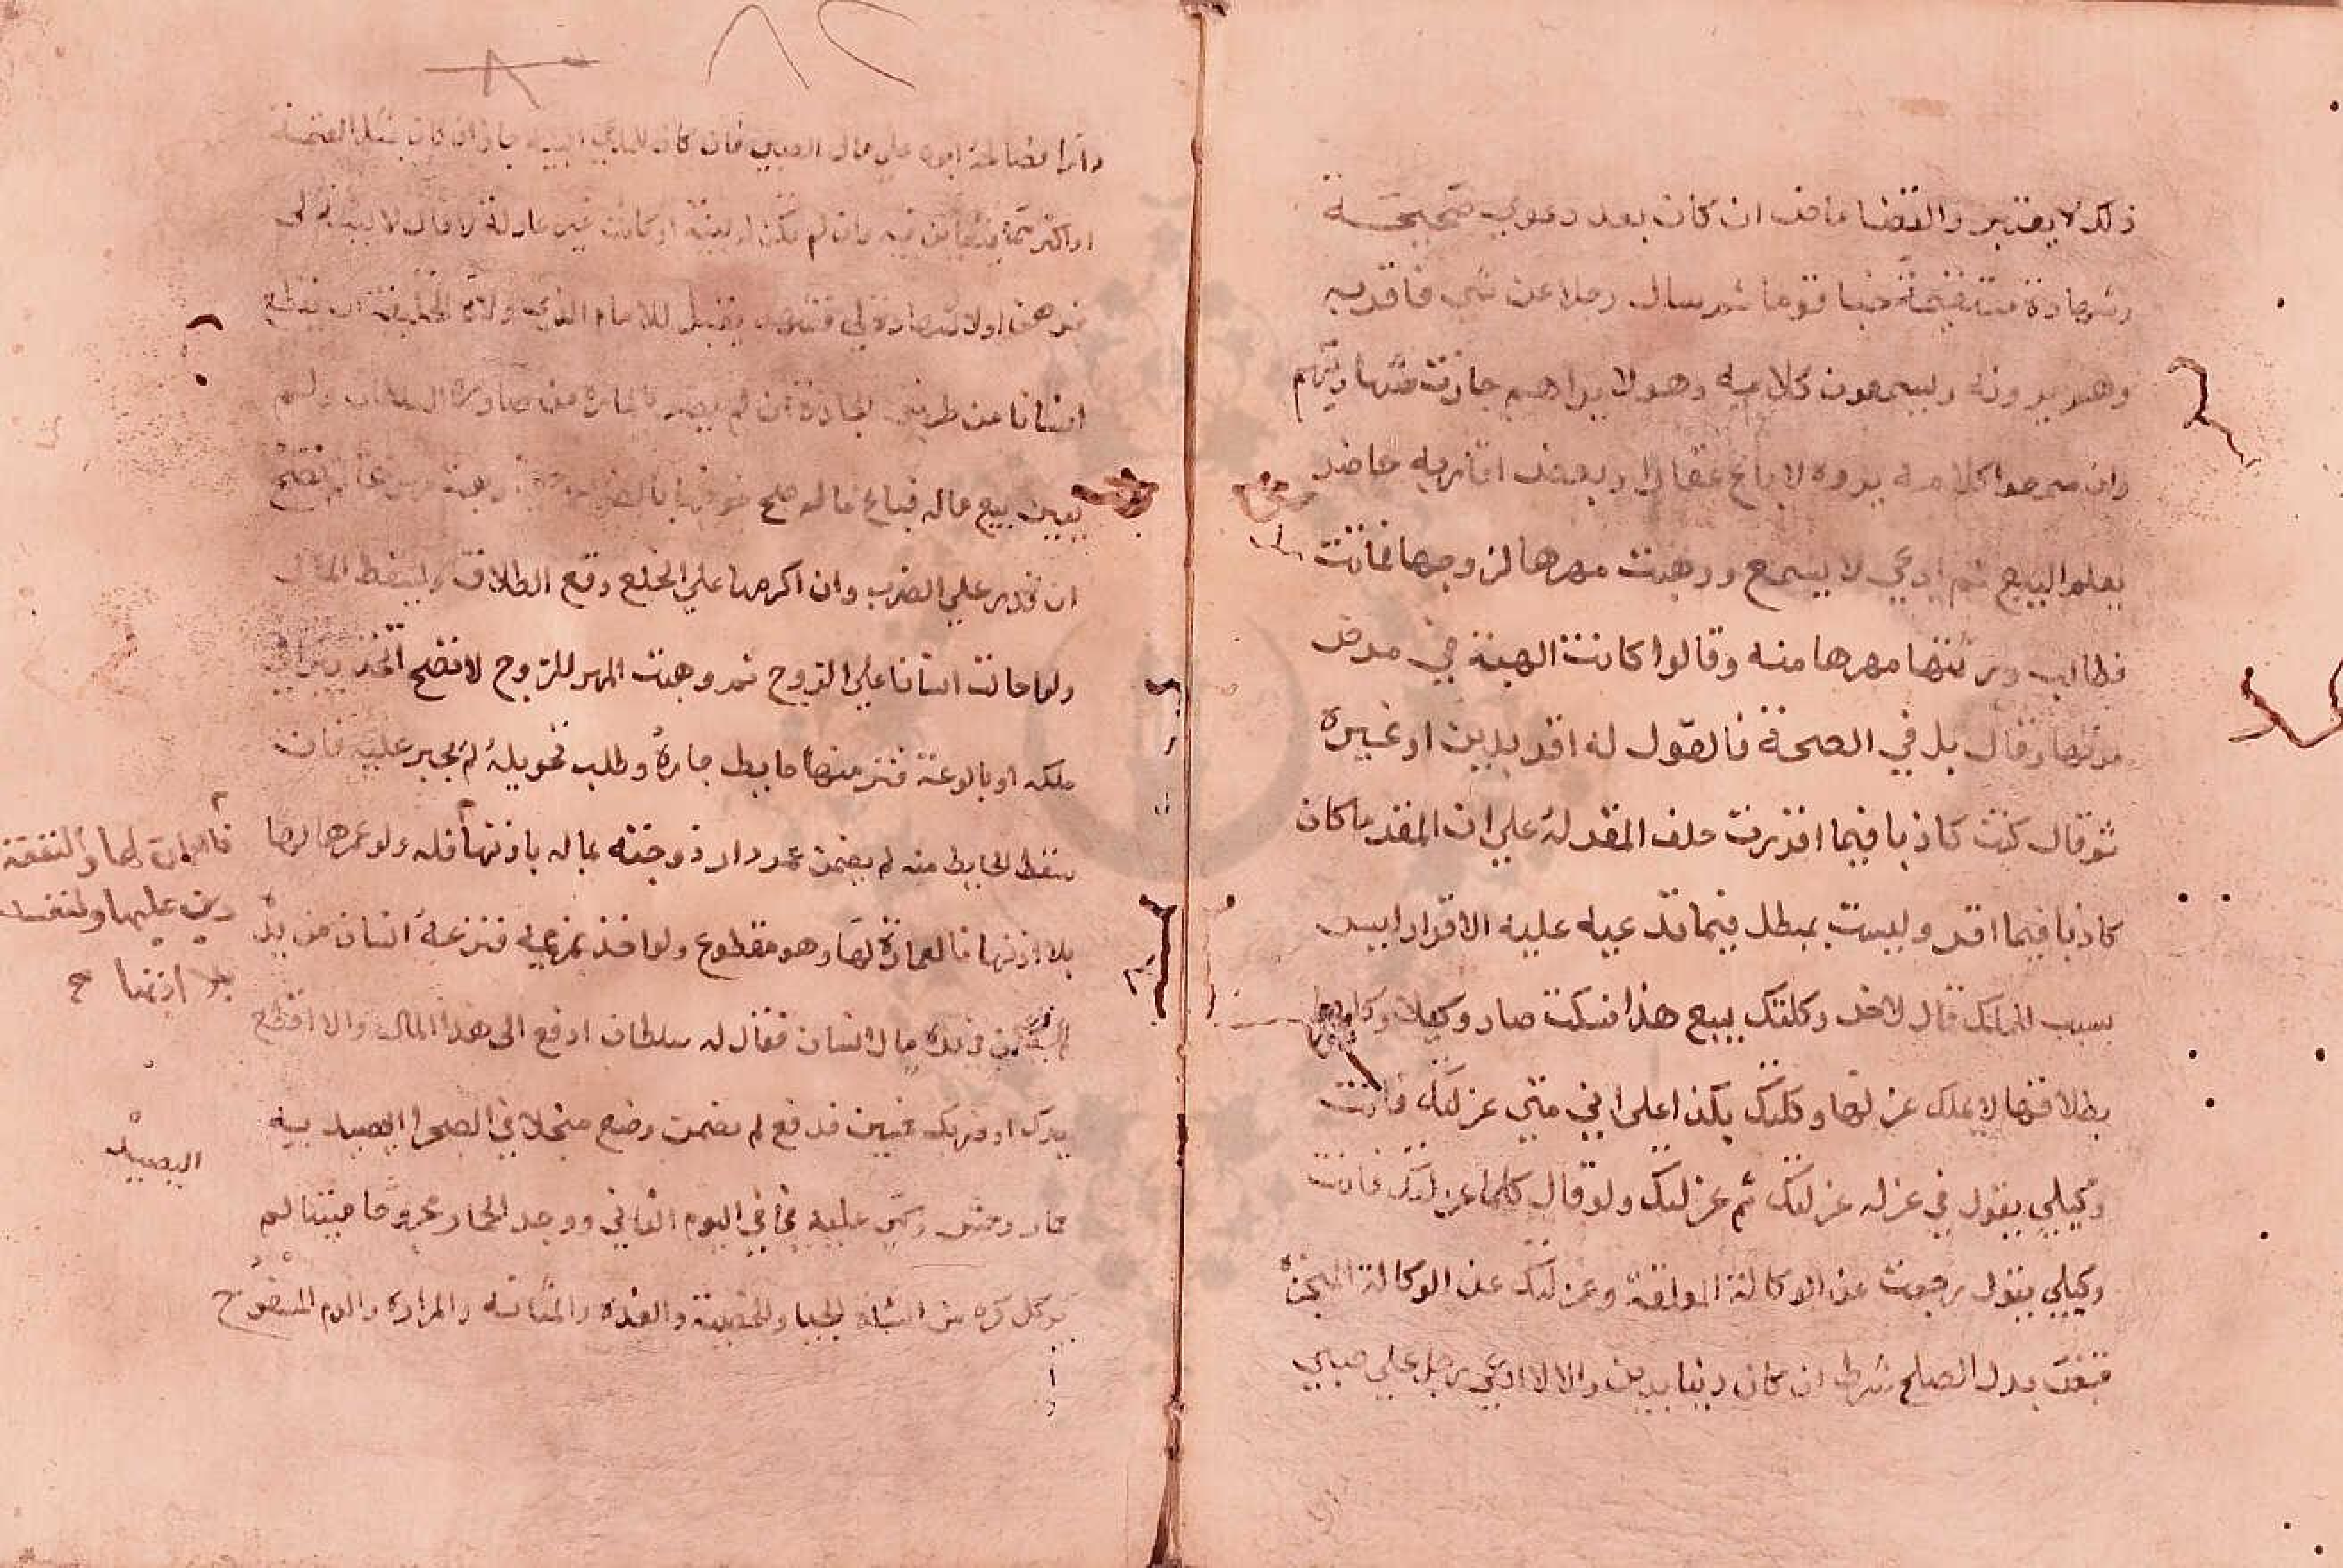 ذلك لا يعتبر والقضا ماض ان كان بعد دعوي صحيحة
وشهادة مستقيمة خبا قوما ثم سال رجلا عن شي فاقر به
وهم يرونه ويسمعون كلامه وهو لا يراهم جازت شهادتهم
وان سمعوا كلامه ولم يروه لا باع عقارا وبعض اقاربه حاضر
يعلم البيع ثم ادعي لا يسمع ووهبت مهرها لزوجها فماتت
فطالب ورثتها مهرها منه وقالوا كانت الهبة في مرض
موتها وقال بل في الصحة فالقول له اقر بدين او غيره
ثم قال كنت كاذبا فيما اقررت حلف المقر له علي ان المقر ما كان
كاذبا فيما اقر ولست بمبطل فيما تدعيه عليه الاقرار ليس
بسبب للملك قال لاخر وكلتك ببيع هذا فسكت صار وكيلا وكلها
بطلاقها لا يملك عزلها وكلتك بكذا علي اني متي عزلتك فانت
وكيلي يقول في عزله عزلتك ثم عزلتك ولو قال كلما عزلتك فانت
وكيلي يقول رجعت عن الوكالة المعلقة وعزلتك عن الوكالة المنجزة
قبض بدل الصلح شرط ان كان دينا بدين والا لا ادعي رجل علي صبي
دارا فصالحه ابوه علي مال الصبي فان كان للمدعي البينة جاز ان كان بمثل القيمة
او اكثر مما يتغابن فيه وان لم تكن له بينة او كانت غير عادلة لا قال لا بينة لي
فبرهن او لا شهادة لي فشهد يقبل للامام الذي ولاه الخليفة ان يقطع
انسانا من طريق الجادة ان لم يضر بالمارة من صادره السلطان ولم
يعين بيع ماله فباع ماله صح خوفها بالضرب وهبت مهرها لم تصح
ان قدر علي الضرب وان اكرهها علي الخلع وقع الطلاق ولا يسقط المال
ولو احالت انسانا علي الزوج ثم وهبت المهر للزوج لا تصح اتخذ بيرا في
ملكه او بالوعة فنز منها حايط جاره وطلب تحويله لم يجبر عليه فان
سقط الحايط منه لم يضمن عمر دار زوجته بماله باذنها فله ولو عمرها لها
فالعمارة لها والنفقة
دين عليها ولنفسه
بلا اذنها صح
بلا اذنها فالعمارة لها وهو متطوع ولو اخذ غريمه فنزعه انسان من يده
لم يضمن في يده مال انسان فقال له سلطان ادفع الي هذا المال والا اقطع
يدك او اضربك خمسين فدفع لم يضمن وضع منجلا في الصحرا ليصيد به
البصيد
حمار وحش وسمي عليه فجا في اليوم الثاني ووجد الحمار مجروحا ميتا لم
يوكل كره من الشاة الحيا والخصية والغدة والمثانة والمرارة والدم المسفوح